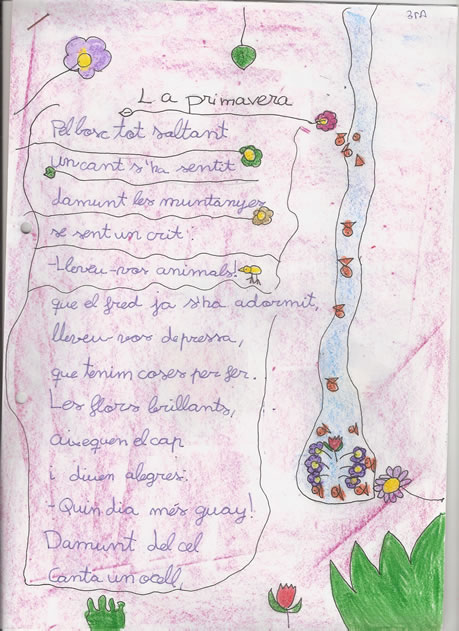 3rA
La primavera
Pel bosc tot saltant
un cant s'ha sentit
damunt les muntanyes
se sent un crit.
-Lleveu-vos animals!
que el fred ja s'ha adormit,
lleveu-vos depressa,
que tenim coses per fer.
Les flors brillants,
aixequen el cap
i diuen alegres:
-Quin dia més guay!
Damunt del cel
Canta un ocell,